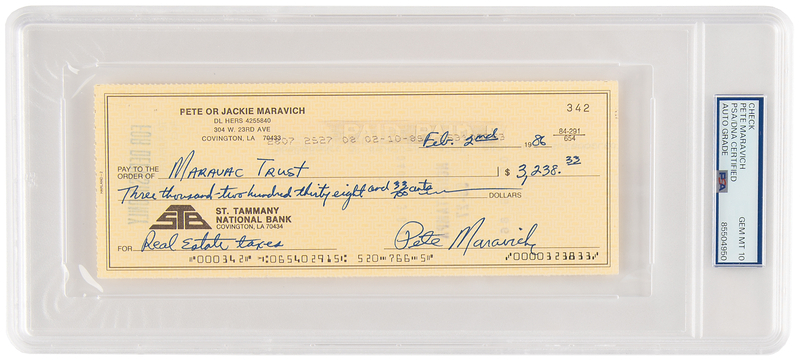 PETE OR JACKIE MARAVICH
DL HERS 4255840
304 W. 23RD AVE
COVINGTON, LA 70433
342
Feb. 2nd 1986
84-291
654
PAY TO THE
ORDER OF Maravac Trust $ 3,238.33
Three thousand-two hundred thirty eight and 33/100 cents DOLLARS
STB
ST. TAMMANY
NATIONAL BANK
COVINGTON, LA 70434
FOR Real Estate taxes Pete Maravich
⑈000342⑈ ⑆065402915⑆ 520⑈766⑈5⑈ ⑈0000323833⑈
CHECK
PETE MARAVICH
PSA/DNA CERTIFIED
AUTO GRADE
PSA
GEM MT 10
85504950